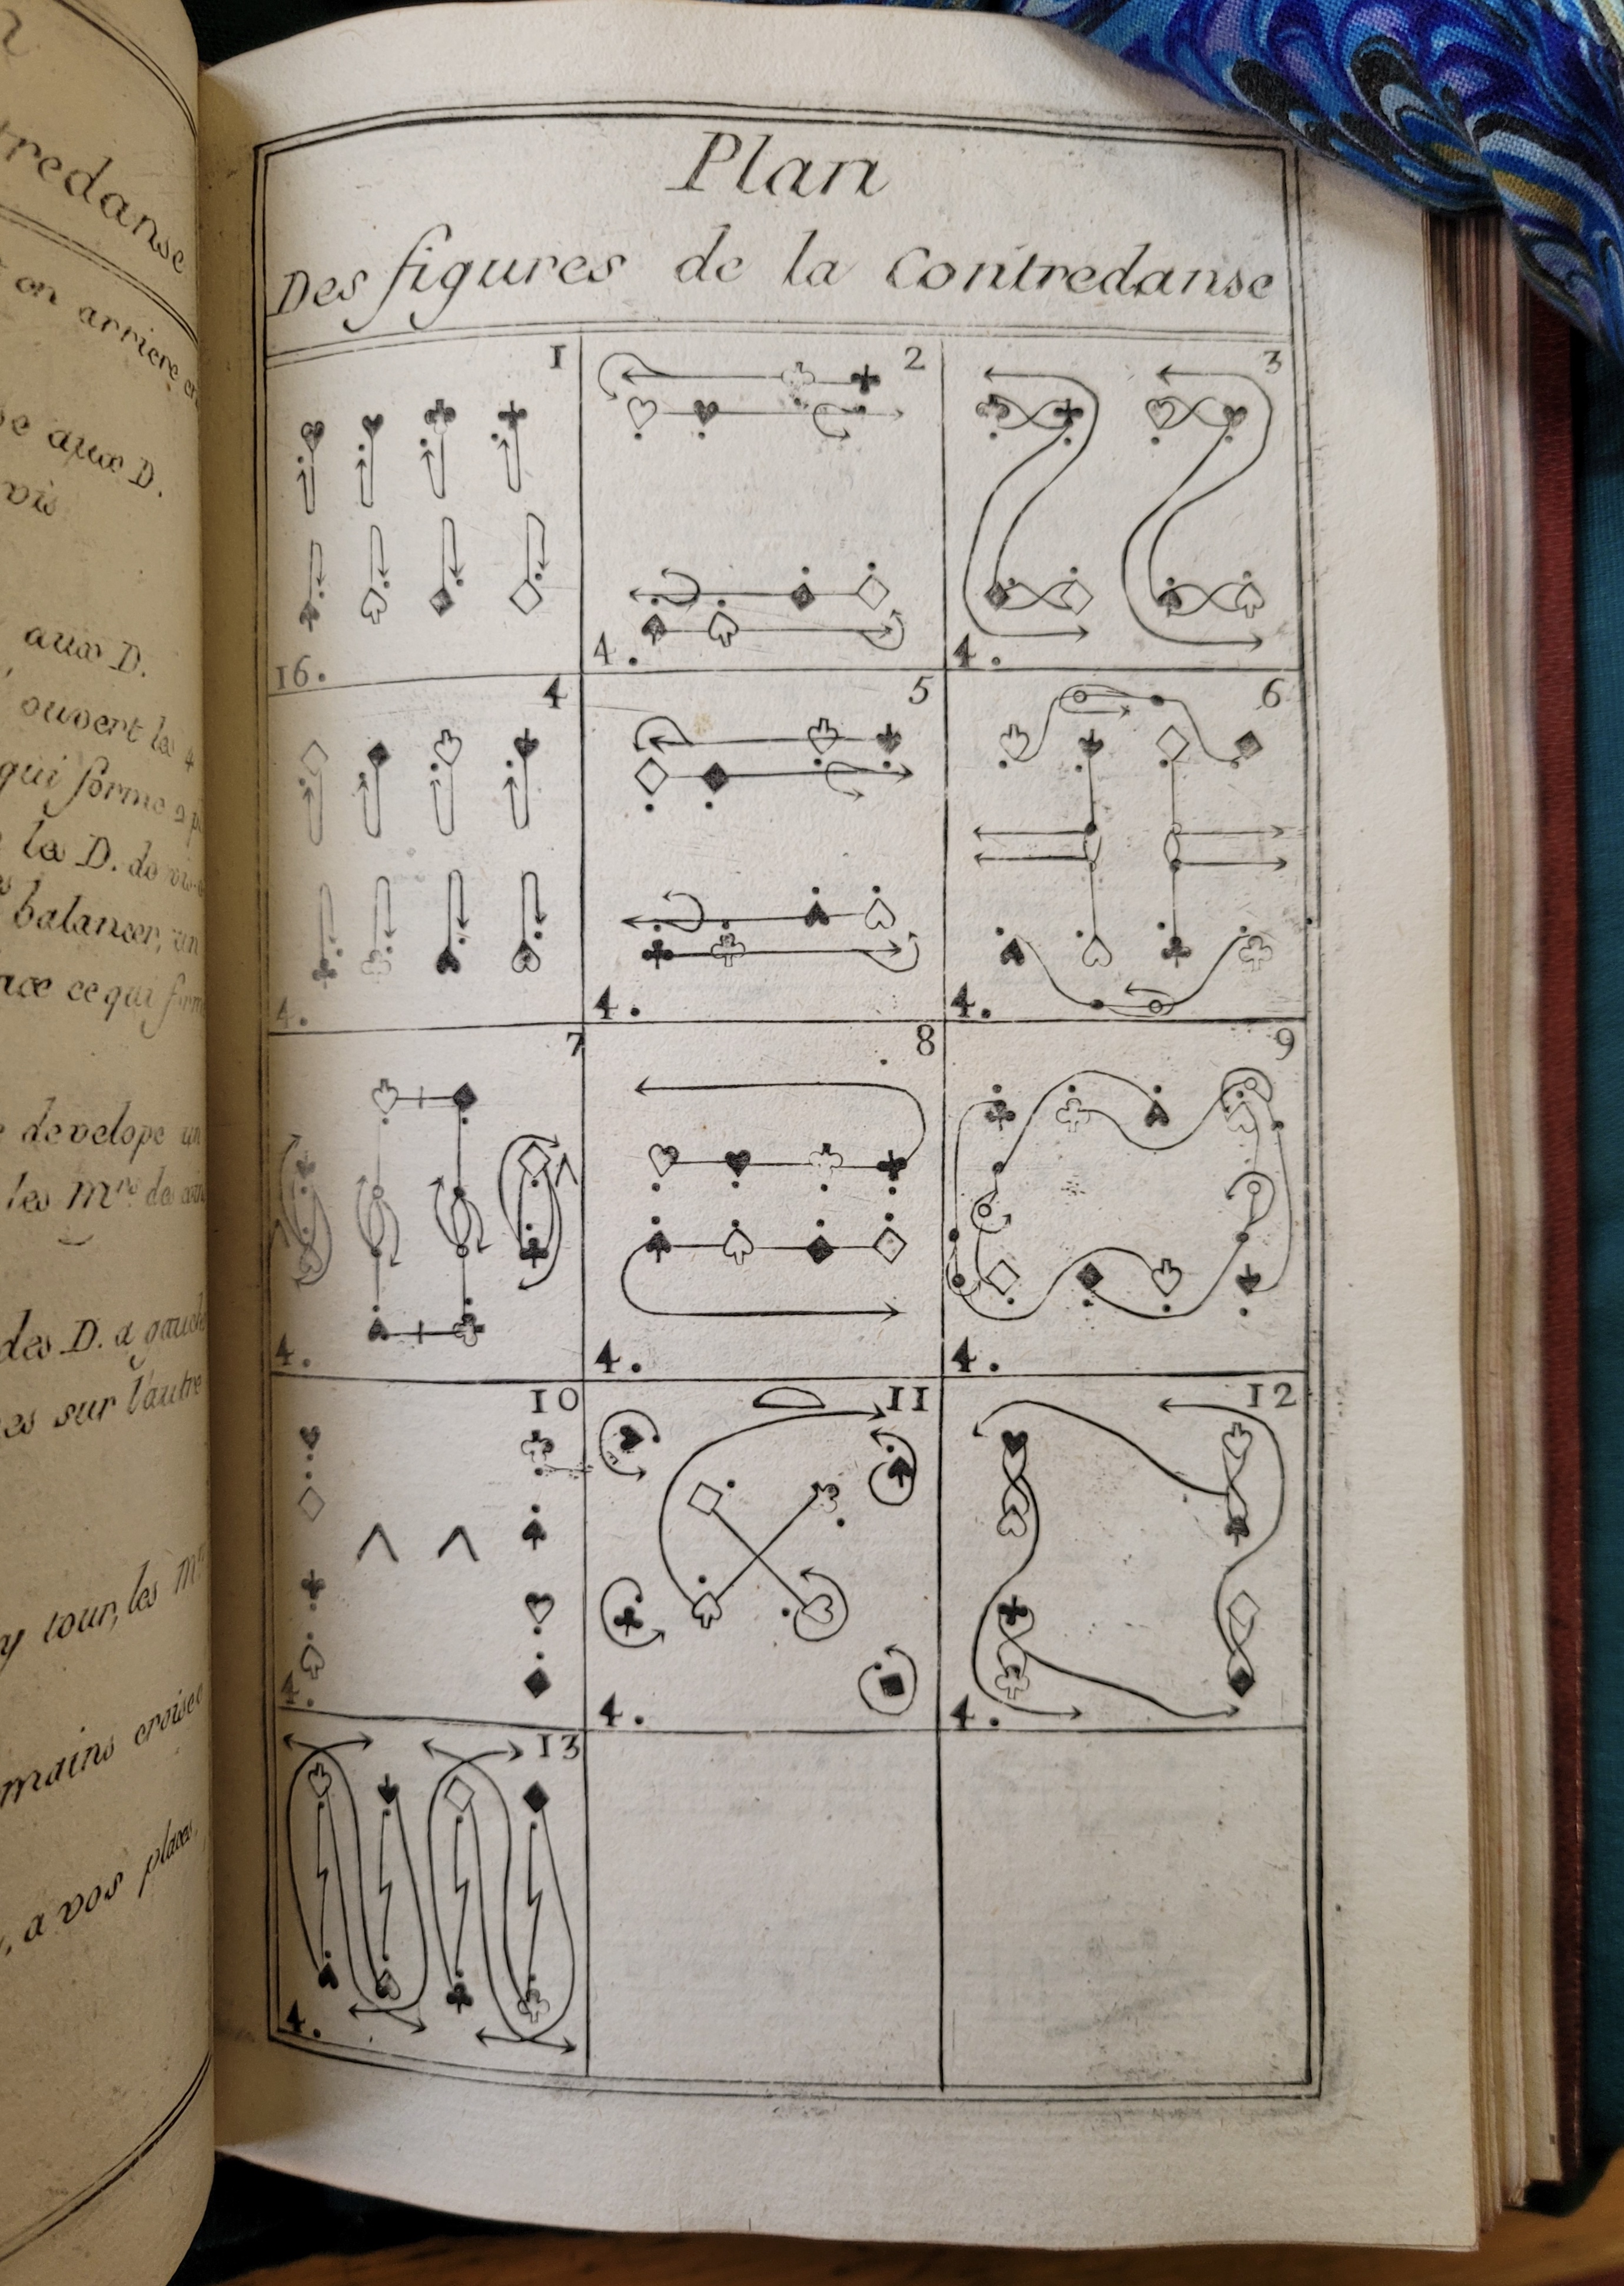 tredanse
on arriere
aux D.
vis
aux D.
ouvert les 4
qui forme 2
la D. de vis
balancer, un
ce qui
develope un
les Mrs de
des D. a gauche
sur l'autre
tour, les Mrs
mains croisée
a vos places,
Plan
Des figures de la Contredanse
1
16.
2
4.
3
4.
4
4.
5
4.
6
4.
7
4.
8
4.
9
4.
10
4.
11
4.
12
4.
13
4.